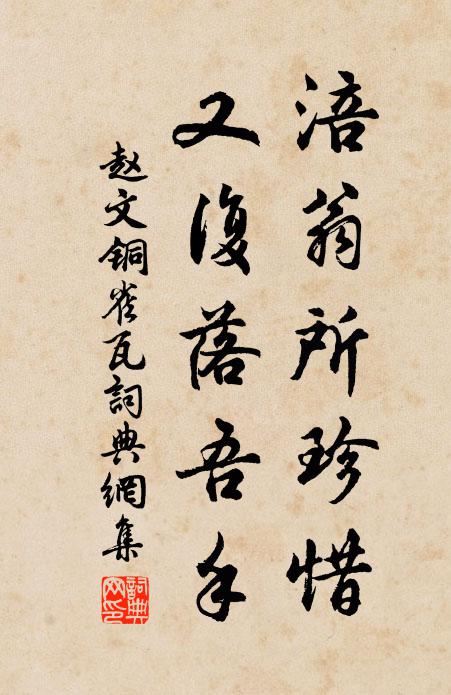 涪翁所珍惜
又復落吾手
赵文铜雀瓦詞典網集
詞典網印